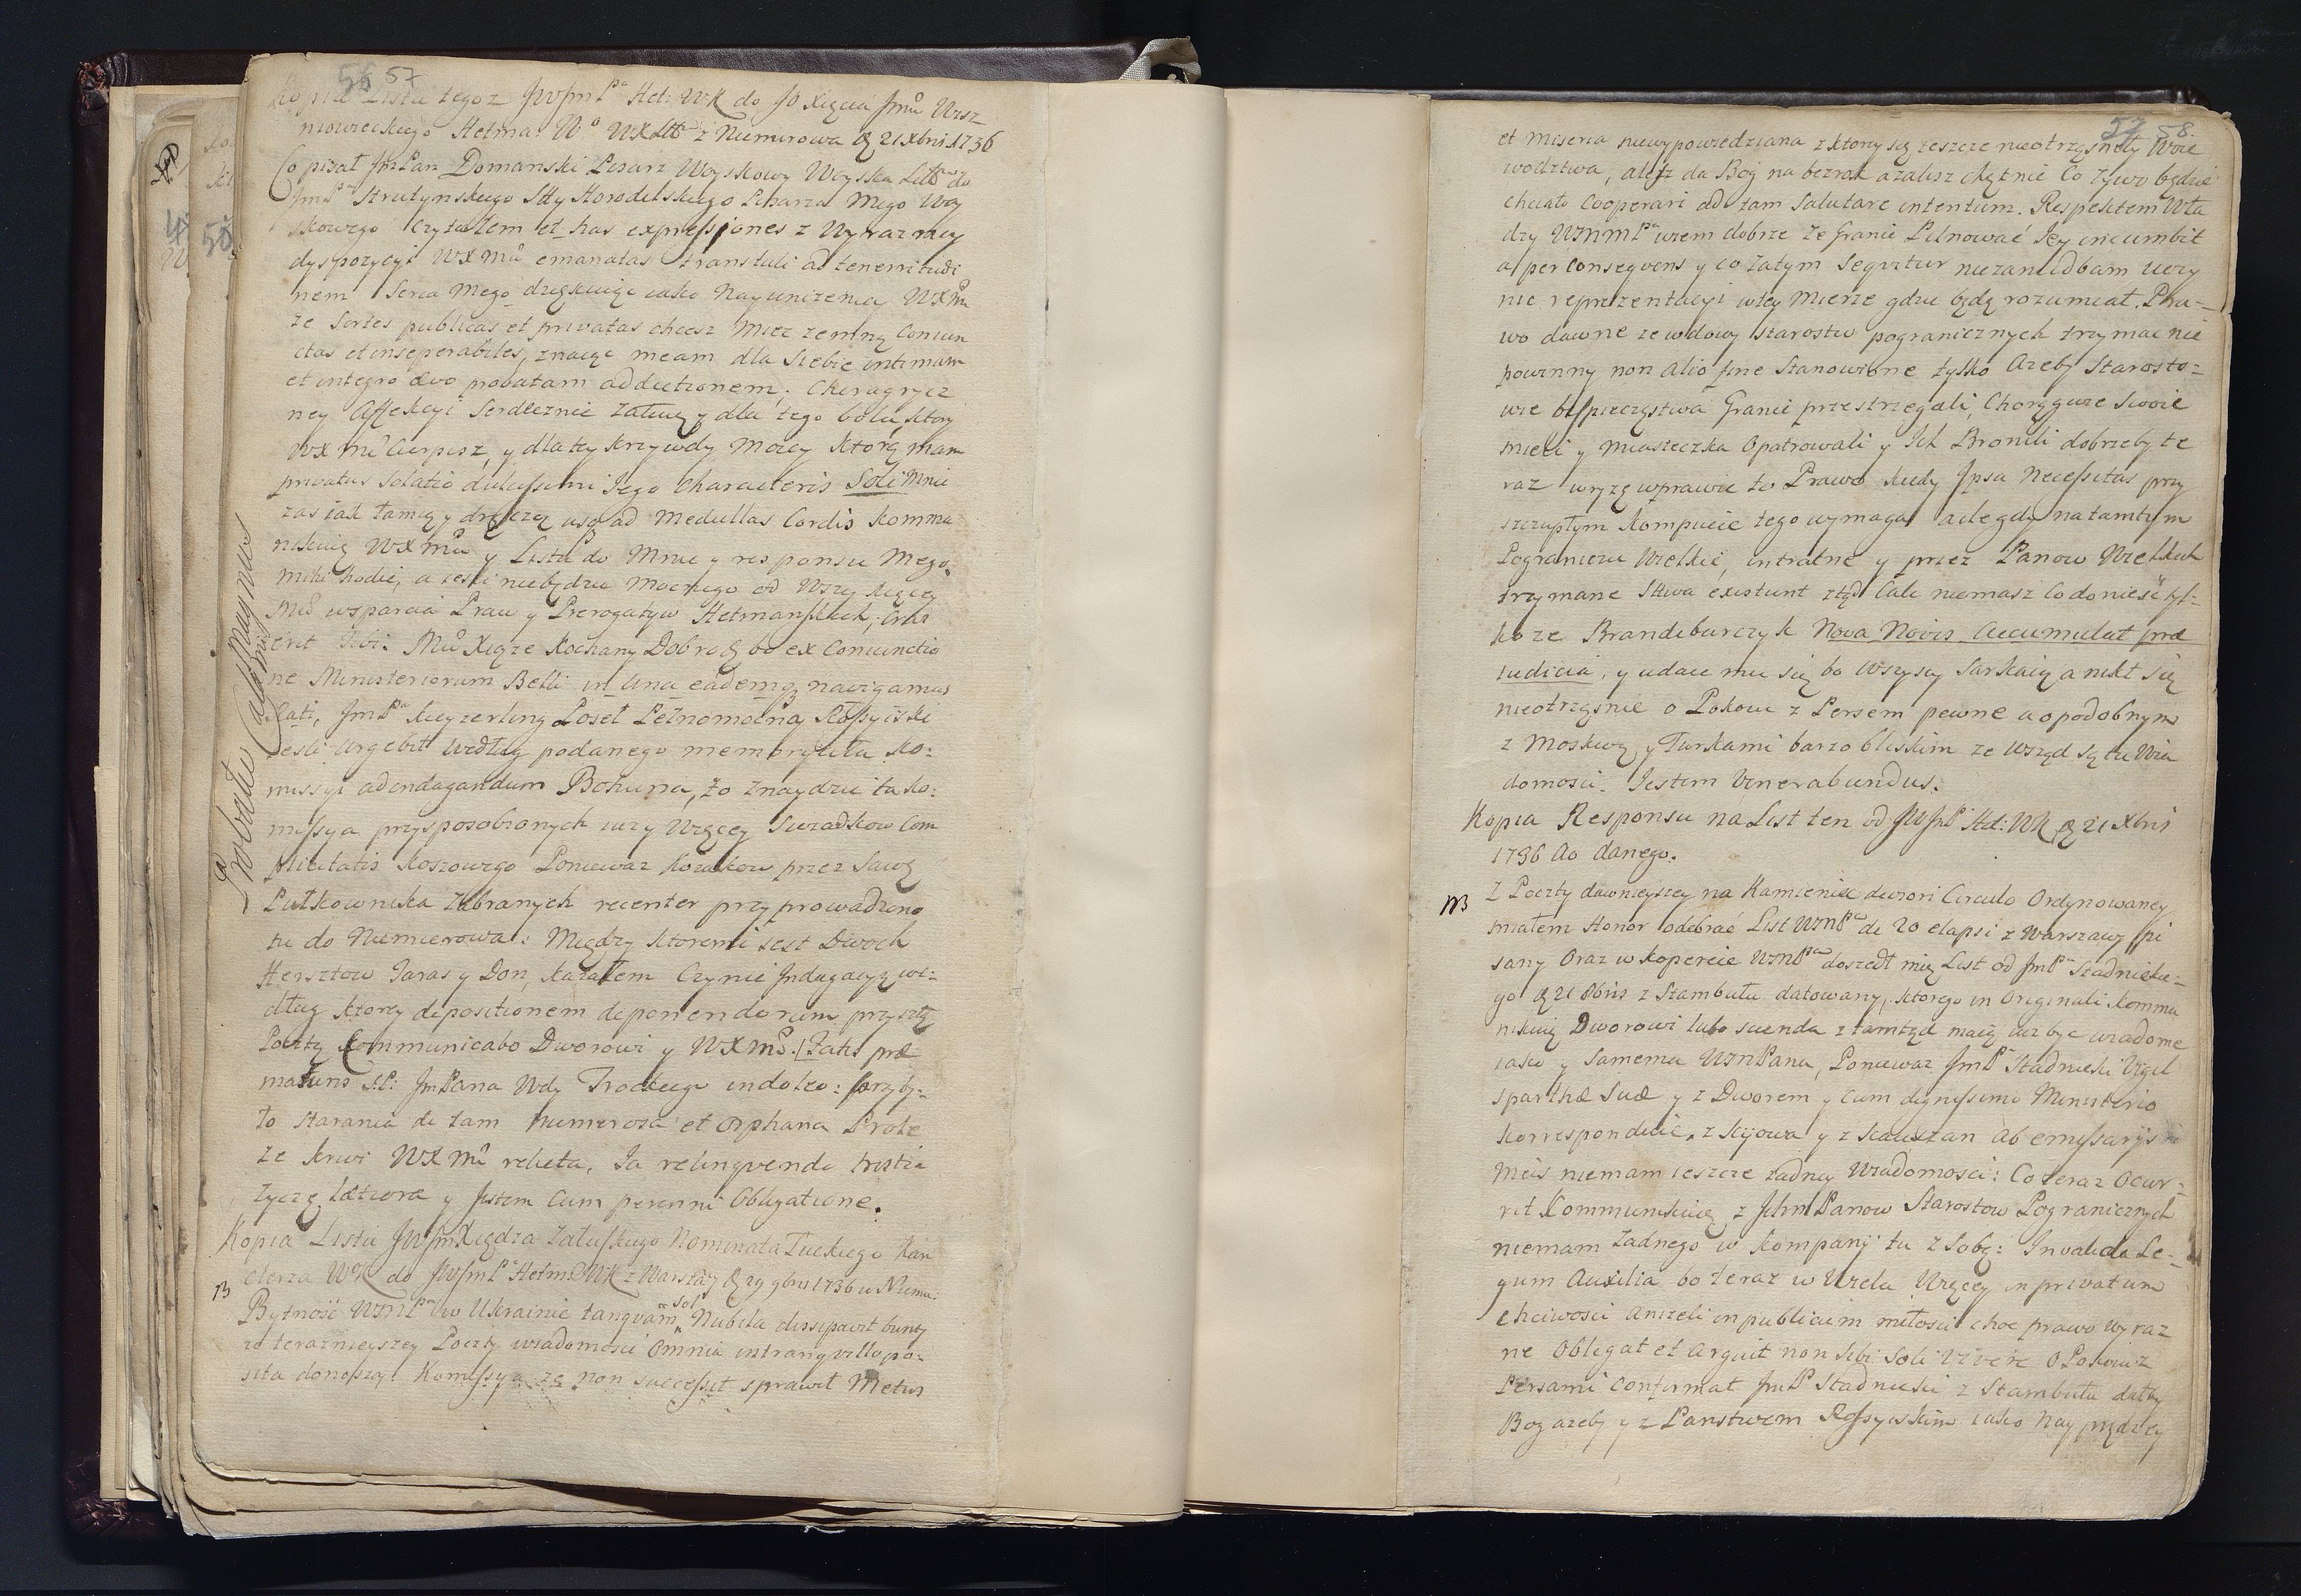 56 57
Kopia Listu tegoz JWJmP<sup>a</sup> Het: WK do JO Xięcia Jmu Wisz
niowieckiego Hetma: W° WXLtt° z Niemirowa 21 Xbris 1736
Co pisał Jm Pan Domanski Pisarz Woyskowy Woyska Litt° do
JmP<sup>a</sup> Strutynskiego Stty Horodelskiego Pisarza Mego Woy
skowego Czytałem et has expressiones z Wyrazney
dyspozycyi WX Mci emanatas transtuli ad tenerritudi
nem Serca Mego dziękuiąc iako Nayunizeniey WXMci
ze Sortes publicas et privatas chcesz Miec zemną Coniun
ctas et inseperabiles, znaiąc meam dla Siebie intimam
et integro ævo probatam addictionem. Chiragrycz
ney Affekcyi Serdecznie Załuię y dla tego bolu, ktory
WX Mć Cierpisz, y dla tey krzywdy Moiey ktorą mam
privatus Solatio dulcissimi Jego Characteris Soli Mnie
zas iak łamią y dręczą usq ad Medullas Cordis kommu
nikuię WXMci y Listu do Mnie y responsu Mego.
mihi hodie, a iesli niebędzie Mocnego od WXey Xięcey
Mci wsparcia Praw y Prerogatyw Hetmanskich, Cras
erit tibi. Mci Xiąze Kochany Dobro bo ex Coniunctio
ne Ministeriorum Belli in una eademq navigamus
Rati. JmP<sup>a</sup> Keyzerling Poseł Pełnomocny Rossyiski
iesli urgebit według podanego memoryału Ko:
missyi ad indagandum Bohuna, to znaydzie ta ko:
missya przysposobionych iuz y Więcey Swiadkow Com
plicitatis Koszowego Poniewaz Kozakow przez Sawę
Pułkownika Zabranych recenter przyprowadzono
tu do Niemierowa: Między ktoremi iest Dwoch
Hersztow Taras y Don, kazałem Czynic Indagacyą we:
dług ktorey depositionem deponendorum przyszłą
Pocztą Communicabo Dworowi y WX Mci. Fatis præ
maturis SP: Jm Pana Wdy Trockiego indoleo: przyby:
ło starania de tam numerosa et orphana Prole
ze krwi WX Mci relicta. Ja relinqvendo tristia
życzę lætiora y Jestem Cum perenni Obligatione.
Kopia Listu JWJmXiędza Załuskiego Nominata Łuckiego Kan
clerza WK do JWJmP<sup>a</sup> Hetm: WK z Warszay 29 9bris 1736 w Niemi:
Bytność WJmP<sup>a</sup> w Ukrainie tanqvam Sol Nubila dissipavit bunty
ze teraznieyszey Poczty wiadomosci Omnia in tranqvillo po:
sita donoszą. Komissya ze non successit sprawił Metus
Probatæ Calumniæ Magnus
57 58.
et Miseria niewypowiedziana z ktorey się ieszcze nieotrząsneły Woie
wodztwa, aleć da Bog na bezrok azalisz chętnie Co zywo będzie
chciało Cooperari ad tam Salutare intentum. Respektem Wła
dzy WJmMP<sup>a</sup> wiem dobrze ze Granic Pilnować Jey incumbit
a per Conseqvens y co zatym Seqvitur niezaniedbam uczy
nic reprezentacyi w tey Mierze gdzie będę rozumiał. Pra-
wo dawne ze wdowy Starostw pogranicznych trzymac nie
powinny non alio fine Stanowione tylko Azeby Starosto:
wie bespieczęstwa Granic przestrzegali, Chorągwie Swoie
mieli y Miasteczka Opatrowali y Ich Bronili dobrzeby te
raz wryzę wprawic to Prawo kiedy Ipsa Necessitas przy
szczupłym Kompucie tego wymaga ale gdy na tamtym
Pograniczu Wielkie, intratne y przez Panow Wielkich
trzymane Sttwa existunt ztąd Cale niemasz Co doniesć tyl:
ko ze Brandeburczyk Nova Novis accumulat præ
iudicia, y udaie mu się bo Wszyscy Sarkaią a nikt się
nieotrząsnie o Pokoiu z Persem pewne a o podobnym
z Moskwą y Turkami barzo bliskim ze Wsząd są tu Wia
domosci. Jestem Venerabundus.
Kopia Responsu na List ten od JWJmP Het: WK 21 Xbris
1736 Ao danego.
NB Z Poczty dawnieyszey na Kamieniec dwori Circulo Ordynowaney
miałem Honor odebrać List WJmP<sup>a</sup> de 20 elapsi z Warszawy pi
sany Oraz w kopercie WJmP<sup>a</sup> doszedł mię List od JmP<sup>a</sup> Stadnickie-
go 21 8bris z Stambułu datowany, ktorego in Originali kommu
nikuię Dworowi lubo scienda z tamtąd maią iuz byc wiadome
iako y Samemu WJmPanu, Poniewaz JmP Stadnicki Vigil
Sparthæ Suæ y z Dworem y Cum dignissimo Ministerio
korresponduie. z Kijowa y z Kauszan ab emissarijs
Meis niemam ieszcze zadney Wiadomosci: Co teraz Ocur-
rit Kommunikuię, z Ichm Panow Starostow Pogranicznych
niemam Zadnego w kompanij tu z Sobą: Invalida Le-
gum Auxilia bo teraz w Wielu Więcey in privatum
chciwosci anizeli in publicum miłosci choc prawo wyraz
ne Obligat et arguit non Sibi Soli vivere O Pokoiu z
Persami confirmat JmP Stadnicki z Stambułu dałby
Bog azeby y z Panstwem Rossyiskim iako Nayprędzey